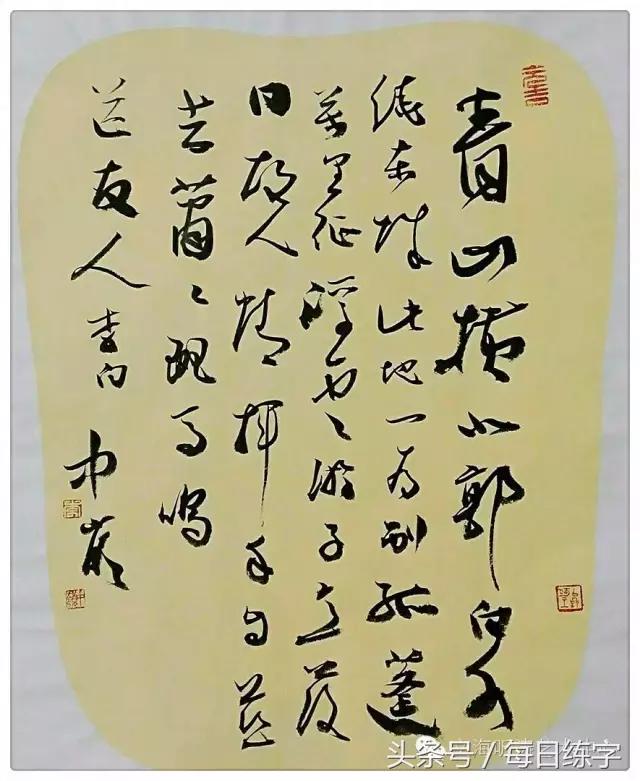 青山横北郭白水
绕东城此地一为别孤蓬
万里征浮云游子意落
日故人情挥手自兹
去萧〻班马鸣
送友人李白
头条号 / 每日练字